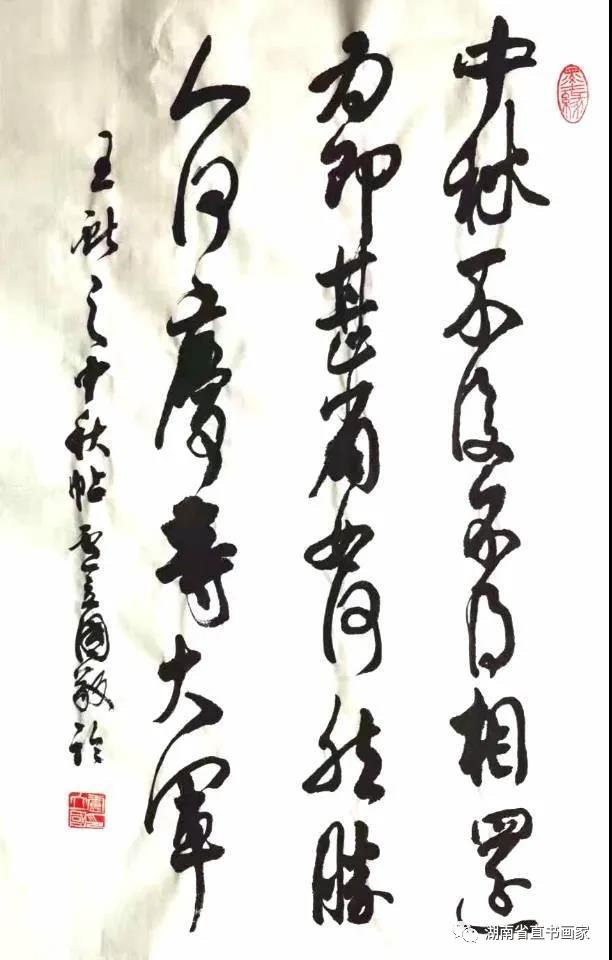 墨缘
中秋不復不得相還
為即甚省如何然勝
人何慶等大軍
王献之中秋帖 立國敬临
湖南省直书画家